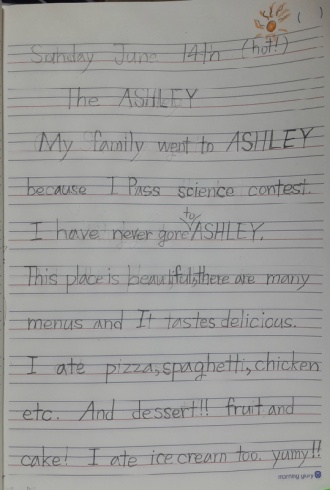 Sunday June 14th (hot!) ( )
The ASHLEY
My family went to ASHLEY
because I Pass science contest.
to
I have never gone ASHLEY.
This place is beautiful, there are many
menus and It tastes delicious.
I ate pizza, spaghetti, chicken
etc. And dessert!! fruit and
cake! I ate ice cream too. yumy!!
morning glory